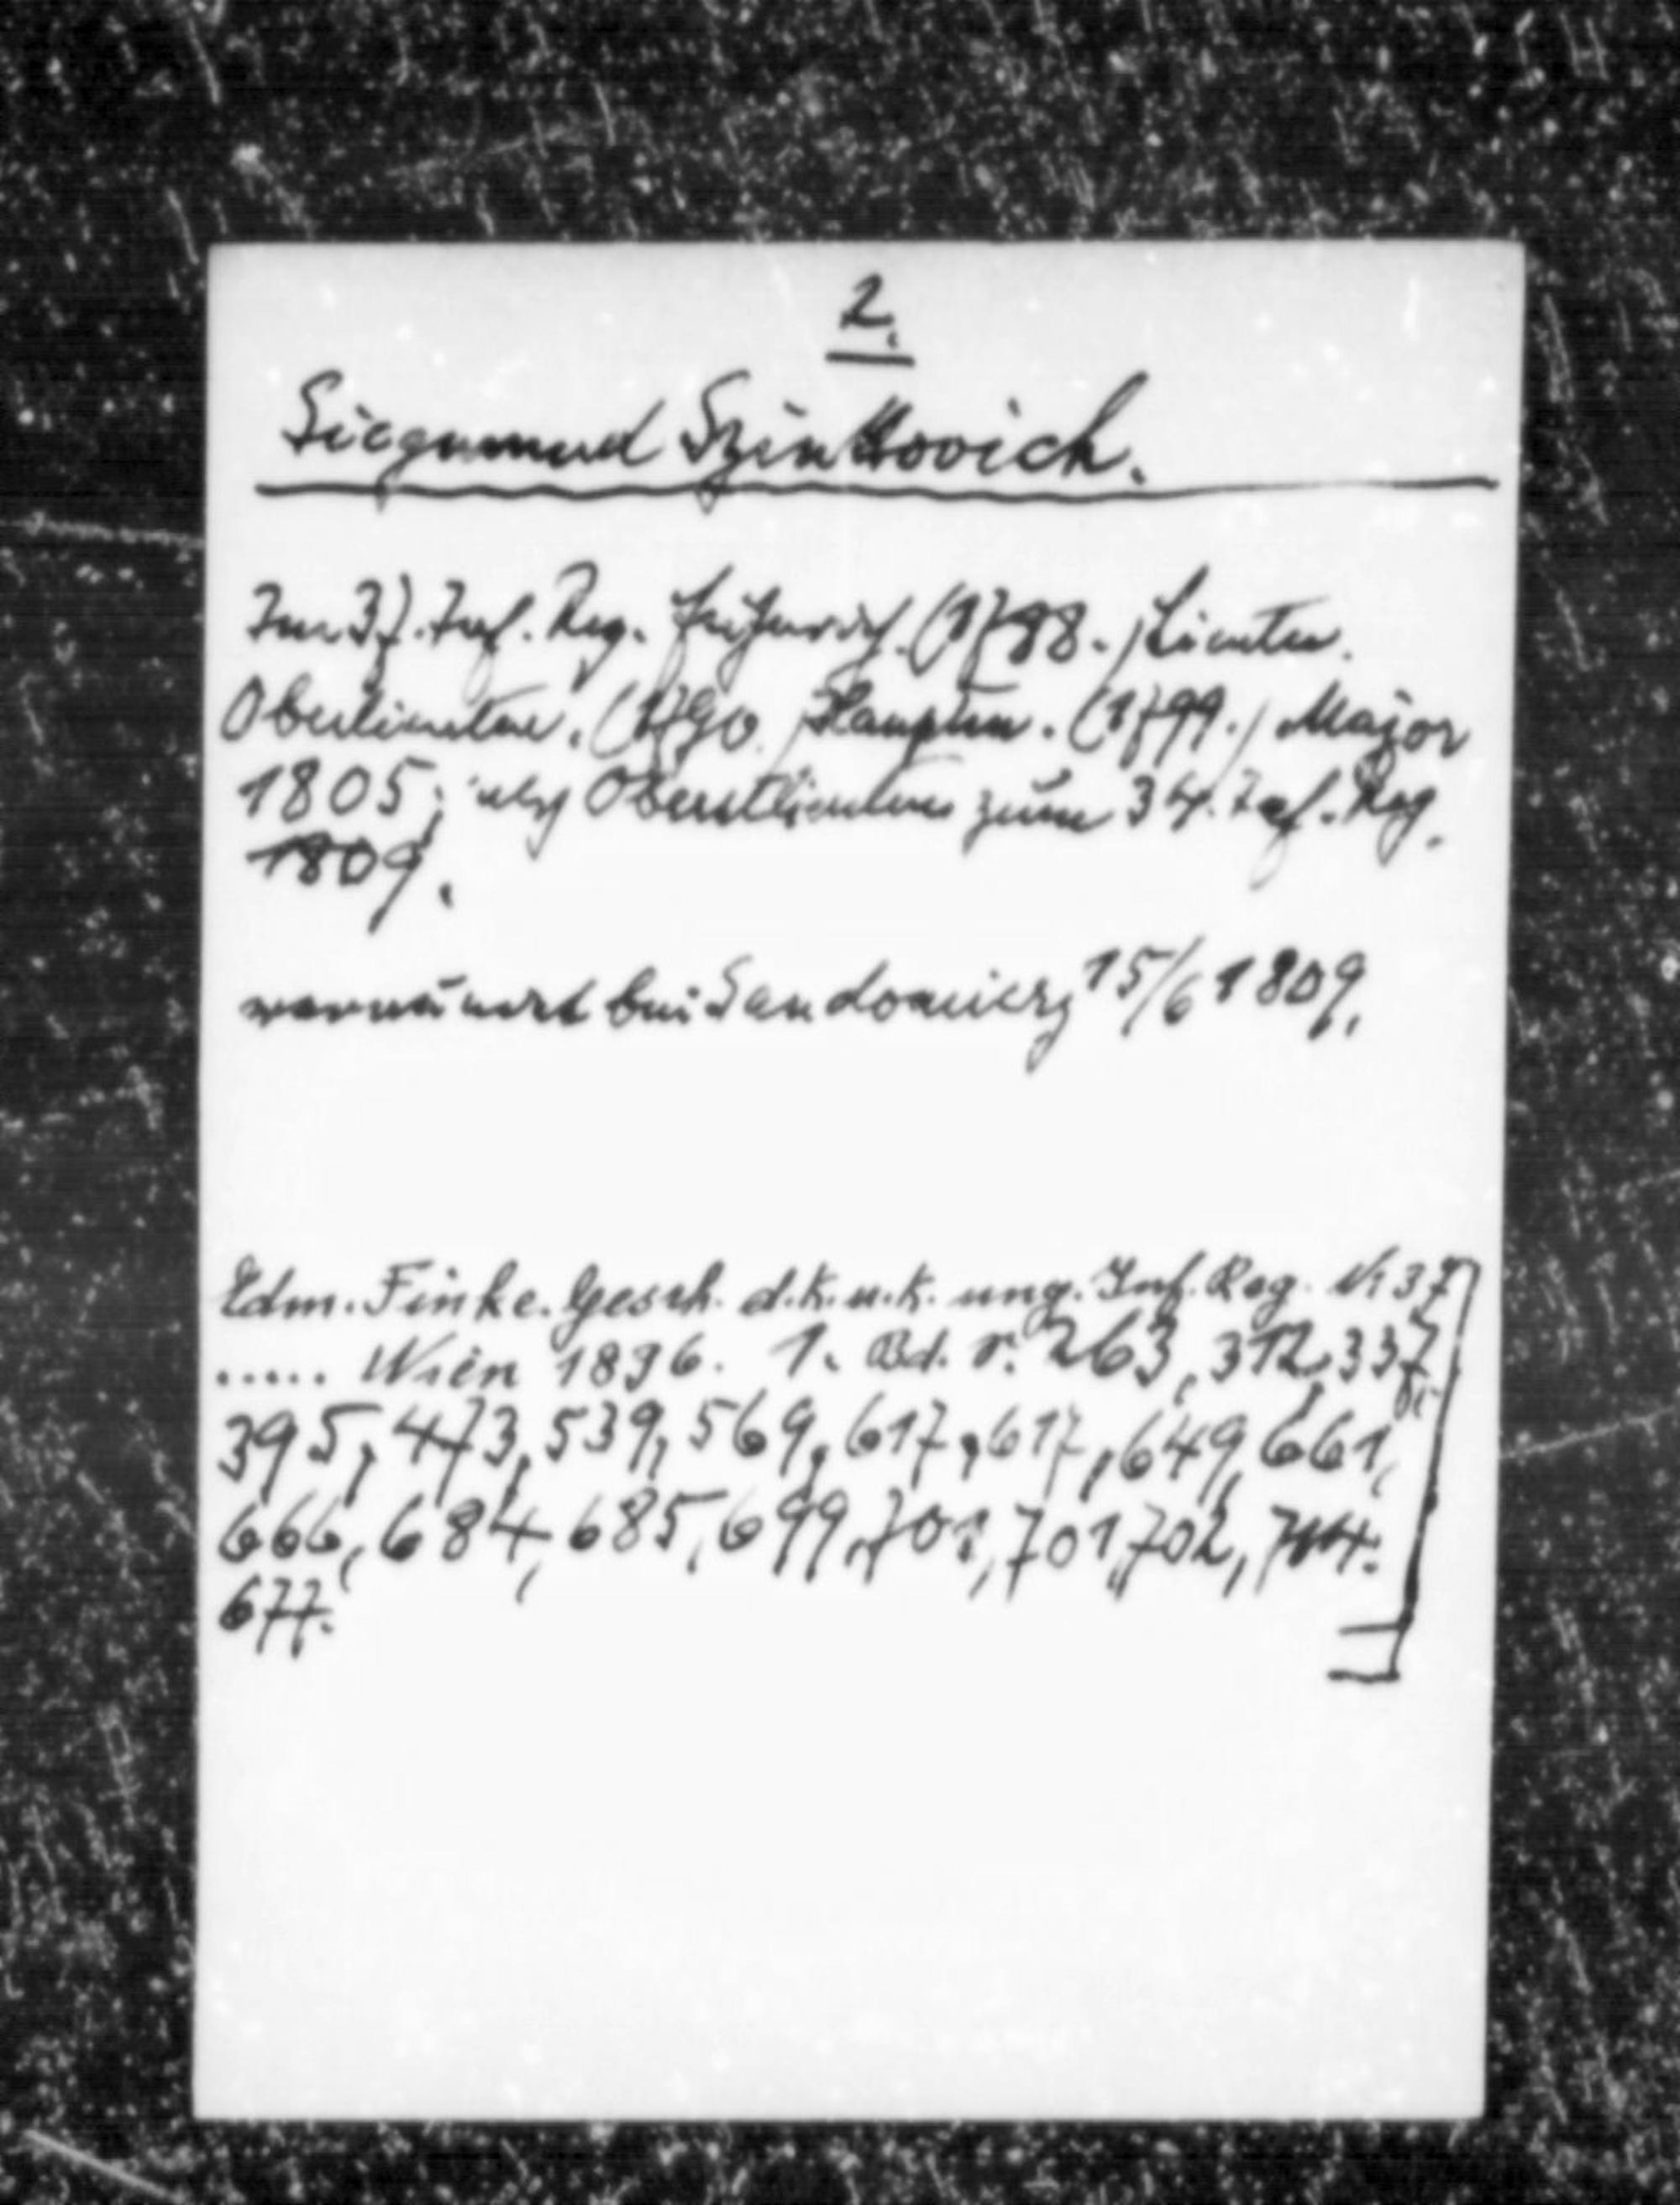 2.
Siegmund Szinkovich.
Im 37. Inf. Reg. Fähnrich. (1788.) Lieuten.
Oberlieuten. (1790.) Hauptm. (1799.) Major
1805; als Oberstlieuten zum 34. Inf. Reg.
1809.
verwundet bei Sandomierz 15/6 1809.
Edm. Finke. Gesch. d. k. u. k. ung. Inf. Reg. Nr 37
..... Wien 1896. 1. Bd. S. 263, 312, 337,
395, 473, 539, 569, 617, 617, 649, 661,
666, 684, 685, 699, 701, 701, 702, 714.
677.